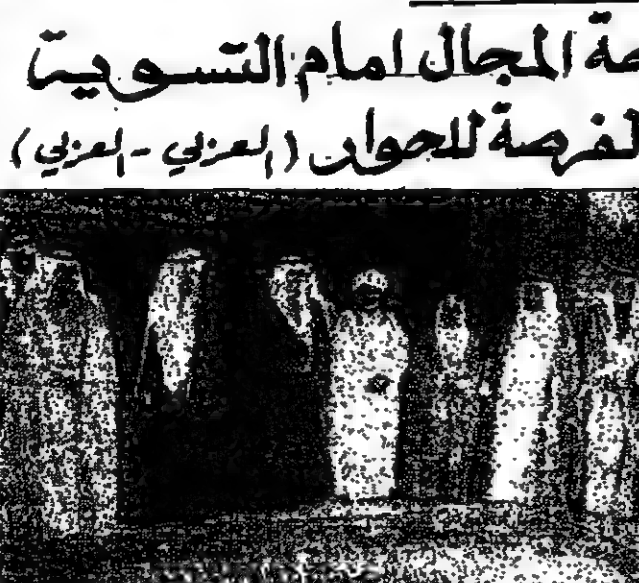 حة المجال امام التسوية
لفرصة للحوار (العربي - العربي)